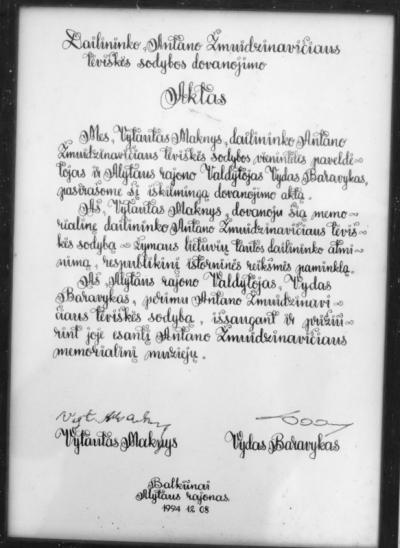 Dailininko Antano Žmuidzinavičiaus
tėviškės sodybos dovanojimo
Aktas
Mes, Vytautas Maknys, dailininko Antano
Žmuidzinavičiaus tėviškės sodybos vienintėlis paveldė-
tojas ir Alytaus rajono Valdytojas Vydas Baravykas,
pasirašome šį iškilmingą dovanojimo aktą.
Aš, Vytautas Maknys, dovanoju šią memo-
rialinę dailininko Antano Žmuidzinavičiaus tėviš-
kės sodybą - žymaus lietuvių tautos dailininko atmi-
nimą, respublikinį istorinės reikšmės paminklą.
Aš Alytaus rajono Valdytojas, Vydas
Baravykas, perimu Antano Žmuidzinavi-
čiaus tėviškės sodybą, išsaugant ir prižiū-
rint joje esantį Antano Žmuidzinavičiaus
memorialinį muziejų.
Vytautas Maknys Vydas Baravykas
Balkūnai
Alytaus rajonas
1994 12 08